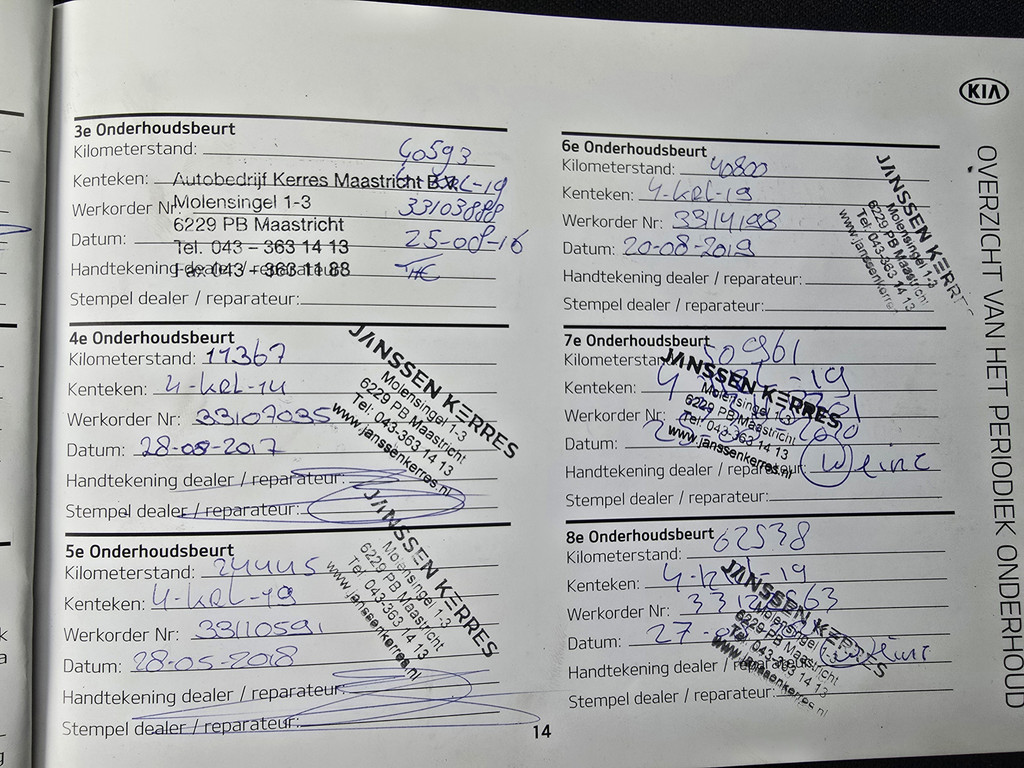 3e Onderhoudsbeurt
Kilometerstand: 40593
Kenteken:
Autobedrijf Kerres Maastricht B.V.
Werkorder Nr: 33103888
Molensingel 1-3
6229 PB Maastricht
Datum: 25-08-16
Tel. 043 - 363 14 13
Handtekening dealer / reparateur:
Fax 043 - 363 11 88
Stempel dealer / reparateur:
4e Onderhoudsbeurt
Kilometerstand: 11367
Kenteken: 4-KRL-14
Werkorder Nr: 33107035
Datum: 28-08-2017
Handtekening dealer / reparateur:
Stempel dealer / reparateur:
JANSSEN KERRES
Molensingel 1-3
6229 PB Maastricht
Tel: 043-363 14 13
www.janssenkerres.nl
5e Onderhoudsbeurt
Kilometerstand: 24445
Kenteken: 4-KRL-19
Werkorder Nr: 33110591
Datum: 28-05-2018
Handtekening dealer / reparateur:
Stempel dealer / reparateur:
JANSSEN KERRES
Molensingel 1-3
6229 PB Maastricht
Tel: 043-363 14 13
www.janssenkerres.nl
6e Onderhoudsbeurt
Kilometerstand: 40800
Kenteken: 4-KRL-19
Werkorder Nr: 33114198
Datum: 20-08-2019
Handtekening dealer / reparateur:
Stempel dealer / reparateur:
JANSSEN KERR
Molensingel 1-3
6229 PB Maastricht
Tel: 043-363 14 13
www.janssenkerres
7e Onderhoudsbeurt
Kilometerstand: 50961
Kenteken:
Werkorder Nr:
Datum:
Handtekening dealer / reparateur:
Stempel dealer / reparateur:
JANSSEN KERRES
Molensingel 1-3
6229 PB Maastricht
Tel: 043-363 14 13
www.janssenkerres.nl
8e Onderhoudsbeurt
Kilometerstand: 62538
Kenteken: 4-KRL-19
Werkorder Nr:
Datum:
Handtekening dealer / reparateur:
Stempel dealer / reparateur:
JANSSEN KERRES
Molensingel 1-3
6229 PB Maastricht
Tel: 043-363 14 13
www.janssenkerres.nl
KIA
OVERZICHT VAN HET PERIODIEK ONDERHOUD
14